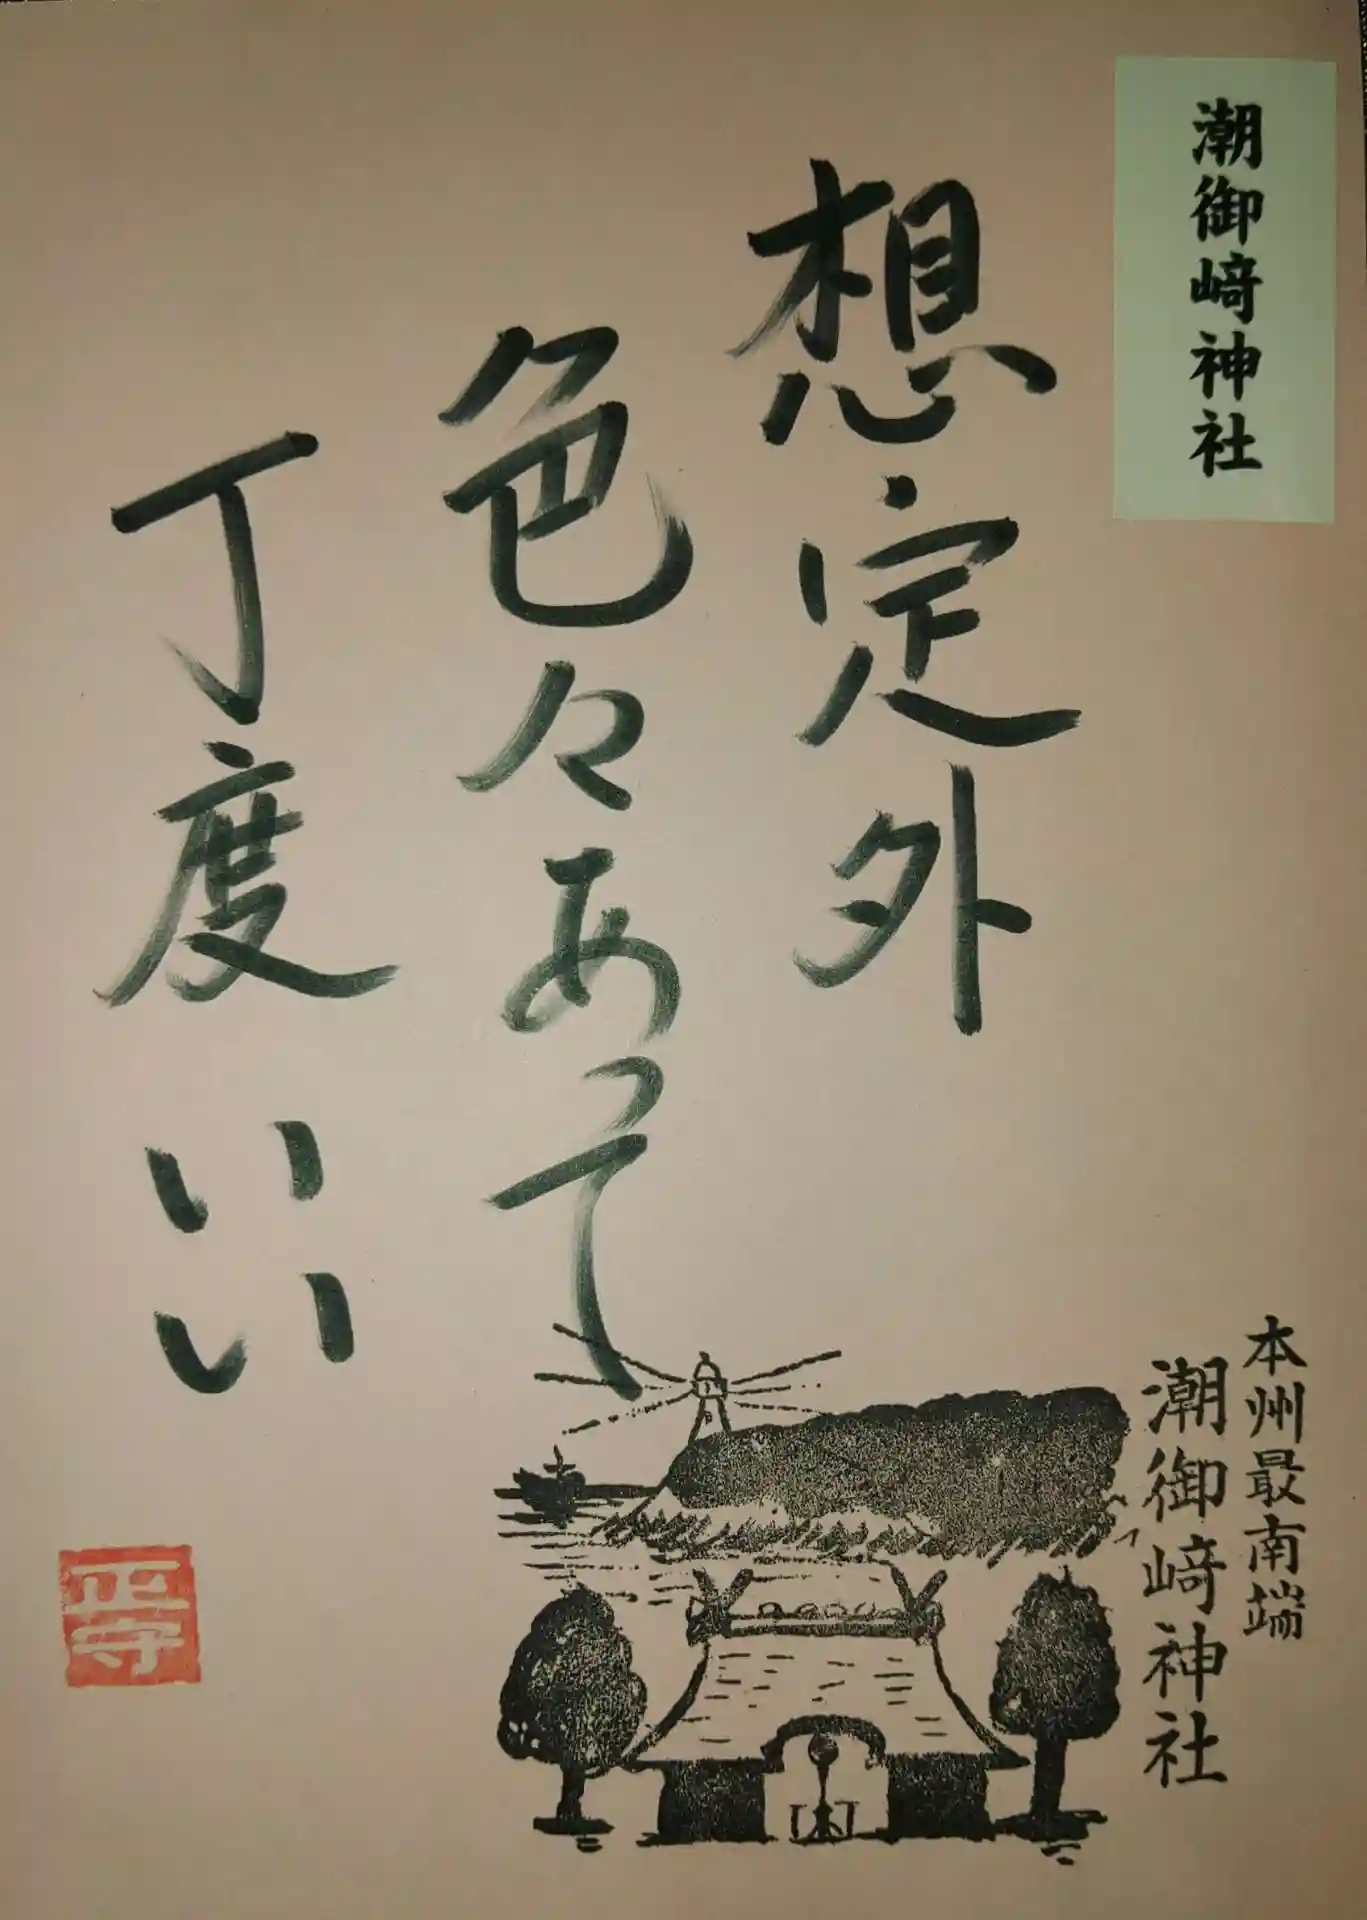 潮御﨑神社
想定外
色々あって
丁度いい
本州最南端
潮御﨑神社
正寺